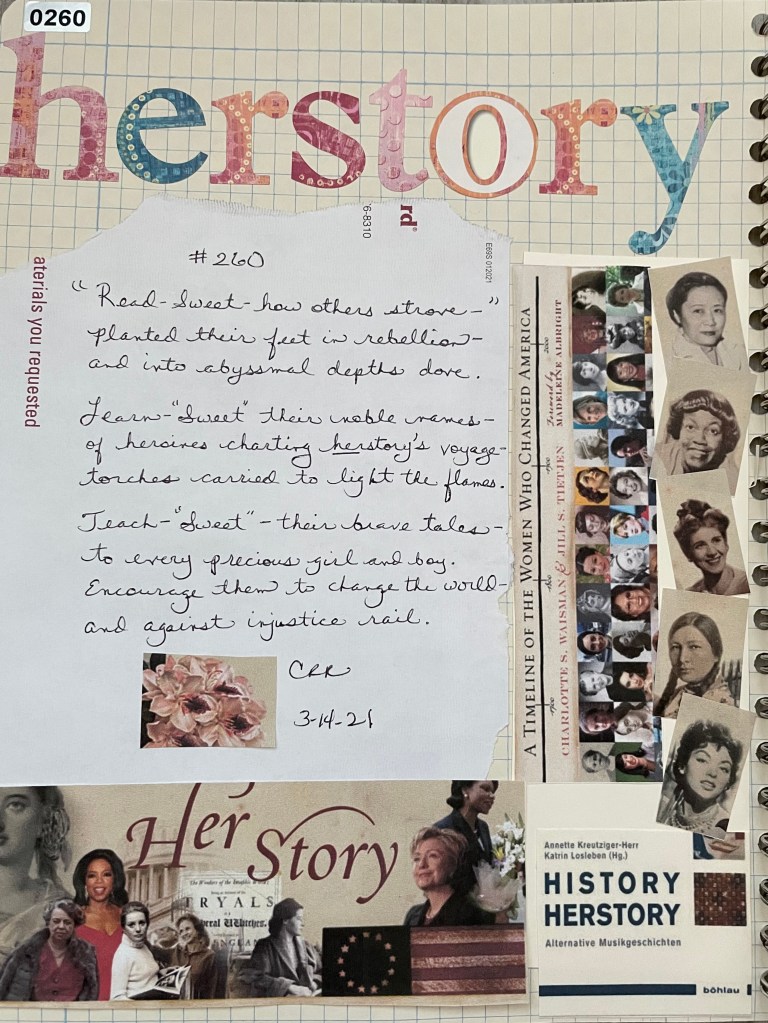 0260
herstory
rd
6-8310
E69S 012021
aterials you requested
#260
"Read-Sweet-how others strove-"
planted their feet in rebellion-
and into abyssmal depths dove.
Learn-"Sweet" their noble names-
of heroines charting herstory's voyage-
torches carried to light the flames.
Teach-"Sweet"-their brave tales-
to every precious girl and boy.
Encourage them to change the world-
and against injustice rail.
CRR
3-14-21
A TIMELINE OF THE WOMEN WHO CHANGED AMERICA
Foreword by
MADELEINE ALBRIGHT
CHARLOTTE S. WAISMAN & JILL S. TIETJEN
Her Story
The Wonders of the Invisible World
TRYALS
Several Witches,
Annette Kreutziger-Herr
Katrin Losleben (Hg.)
HISTORY
HERSTORY
Alternative Musikgeschichten
böhlau